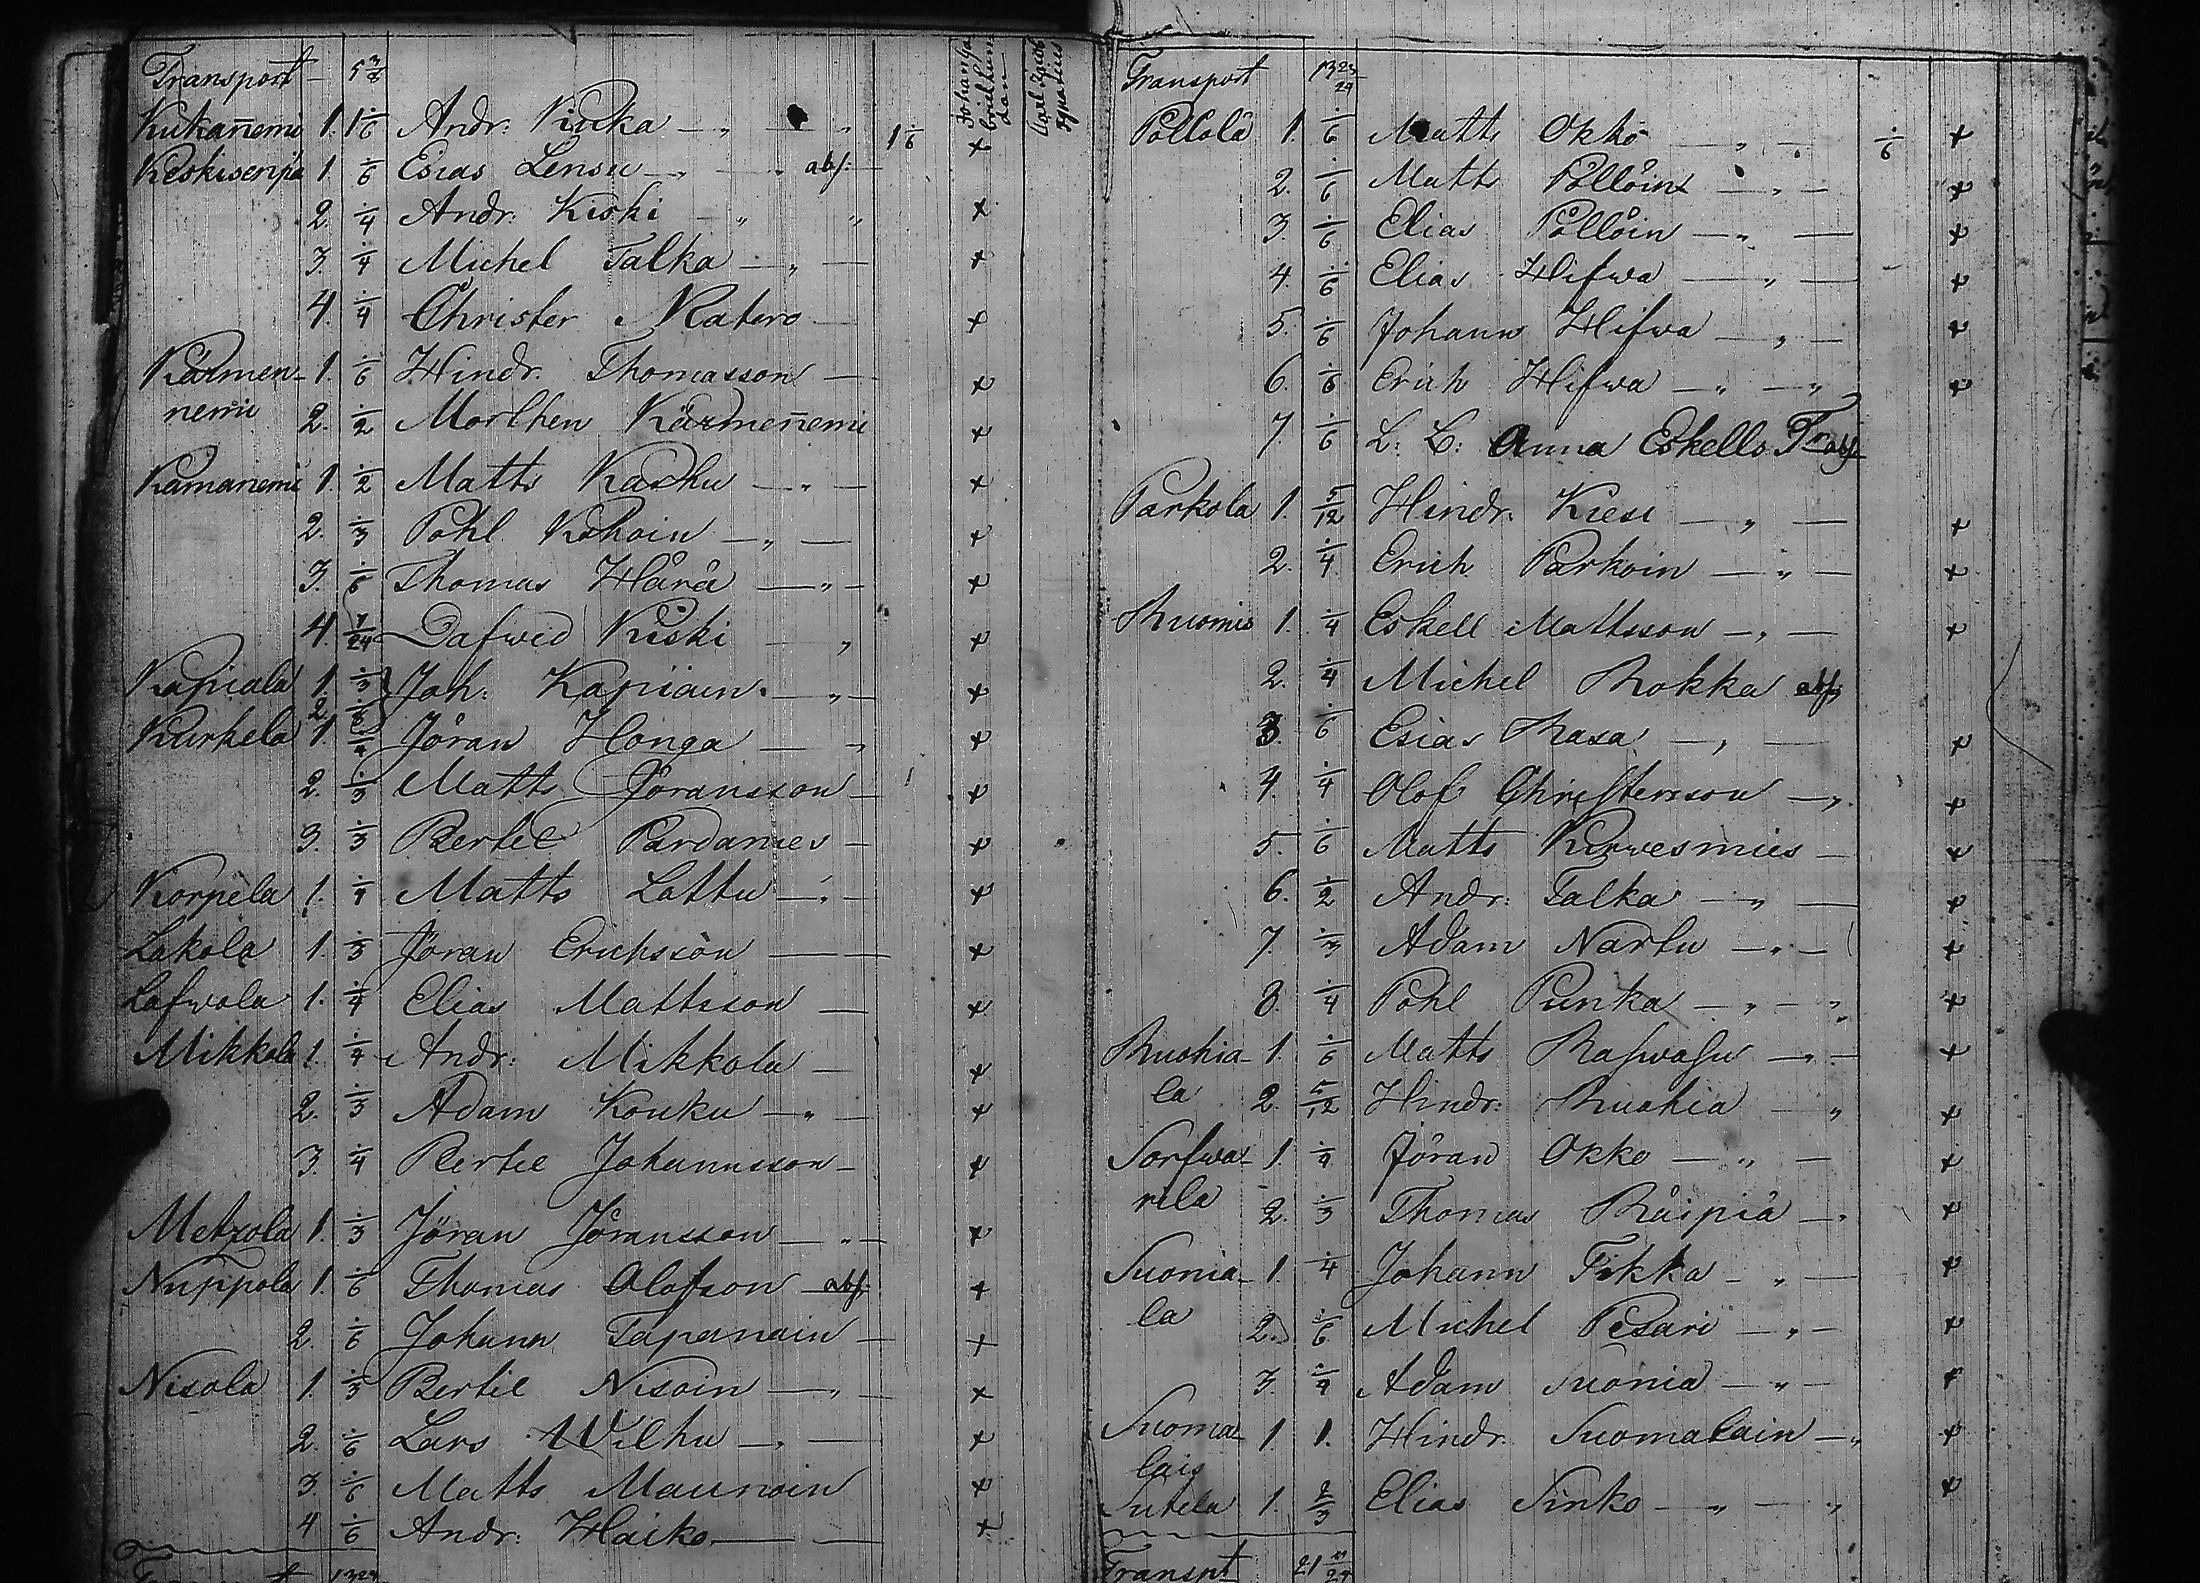 Transport — 5 3/8
Kukañemi 1. 1 1/6 Andr: Kucka — „ — „ 1 1/6 +
Keskiseripä 1. 1/6 Esias Lensu — „ — abs:
2. 1/4 Andr: Kiski — „ „ +
3. 1/4 Michel Talka — „ — +
4. 1/4 Christer Matero — +
Kärmen- 1. 1/6 Hindr. Thomasson — +
nemi 2. 1/2 Morthen Kärmeñemi +
Kämänemi 1. 1/2 Matts Karhu — „ — +
2. 1/3 Påhl Kohoin — „ — +
3. 1/6 Thomas Hårå — „ — +
4. 7/24 Dafwed Kiski — „ +
Kapiala 1. 1/3 Joh: Kapiäin. — „ — +
2. 1/6
Kurkela 1. 1/4 Jöran Honga — „ +
2. 1/3 Matts Jöransson — +
3. 1/3 Bertel Pardanies — +
Korpela 1. 1/4 Matts Lattu — „ — +
Lakola 1. 1/3 Jöran Erichsson — — +
Lafwola 1. 1/4 Elias Mattsson — +
Mikkola 1. 1/4 Andr: Mikkola — +
2. 1/3 Adam Kouku — „ — +
3. 1/4 Bertil Johannsson — +
Metzola 1. 1/3 Jöran Jöransson — „ — +
Nuppola 1. 1/6 Thomas Olofson — abs: +
2. 1/6 Johann Tapanain — +
Nisola 1. 1/3 Bertil Nisoin — „ — +
2. 1/6 Lars Wilhu — „ — +
3. 1/6 Matts Maunoin +
4 1/6 Andr: Haiko — — +
Transport 13 23/24
Pöllölä 1. 1/6 Matts Okko — „ — 1/6 +
2. 1/6 Matts Pöllöin — „ — +
3. 1/6 Elias Pöllöin — „ — +
4. 1/6 Elias Hifwa — „ — +
5. 1/6 Johann Hifwa — „ — +
6. 1/6 Erich Hifwa — „ — „ +
7. 1/6 L: L: Anna Eskells Tr abs:
Parkola 1. 5/12 Hindr. Kiesi — „ — +
2. 1/4 Erich Parkoin — „ — +
Ruomis 1. 1/4 Eskell Mattsson — „ — +
2. 1/4 Michel Rokka abs:
3. 1/6 Esias Rasa — „ — +
4. 1/4 Olof Christersson — „ +
5. 1/6 Matts Kirwesmies — +
6. 1/2 Andr: Talka — „ — +
7. 1/3 Adam Nartu — „ — +
8. 1/4 Påhl Punka — „ — „ +
Ruohia- 1. 1/6 Matts — „ — +
la 2. 5/12 Hindr: Ruohia — „ +
Sorfwa- 1. 1/4 Jöran Okko — „ — +
rila 2. 1/3 Thomas Räipiä — „ +
Suonia- 1. 1/4 Johann Tikka — „ — +
la 2. 1/6 Michel Pesari — „ — +
3. 1/4 Adam Suonia — „ — +
Suoma- 1 1. Hindr. Suomalain — „ +
lais
Sutela 1. 2/3 Elias Sinko — „ — „ +
Transpt 21